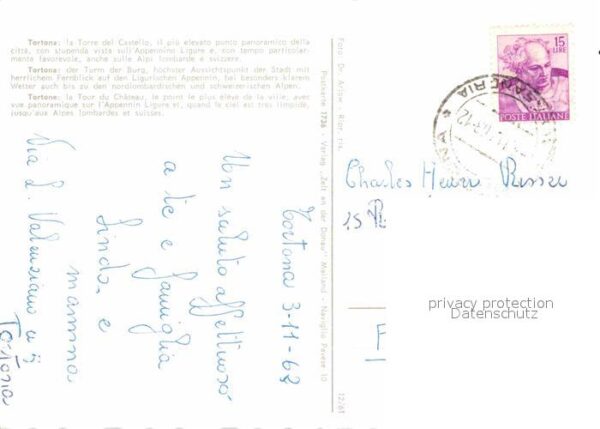 Tortona: la Torre del Castello, il più elevato punto panoramico della
città, con stupenda vista sull'Appennino Ligure e, con tempo particolar-
mente favorevole, anche sulle Alpi lombarde e svizzere.
Tortona: der Turm der Burg, höchster Aussichtspunkt der Stadt mit
herrlichem Fernblick auf den Ligurischen Appennin, bei besonders klarem
Wetter auch bis zu den nordlombardischen und schweizerischen Alpen.
Tortona: la Tour du Château, le point le plus élevé de la ville, avec
vue panoramique sur l'Appennin Ligure et, quand le ciel est très limpide,
jusqu'aux Alpes lombardes et suisses.
Tortona 3-11-68
Un saluto affettuoso
a te e famiglia
Linda, e
mamma
Via L. Valenziano
Tortona
Foto Dr.
Postkarte 1736 - Verlag "Zeit an der Donau" Mailand - Naviglio Pavese 10
12/61
15
LIRE
POSTE ITALIANE
Charles Henri
15 R
F
privacy protection
Datenschutz